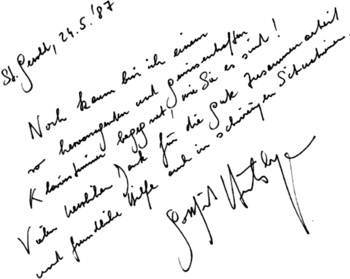 St. Gerold, 24.5.'87
Noch kaum bin ich einem
so hervorragenden und gewissenhaften
Klavierstimmer begegnet, wie Sie es sind!
Vielen herzlichen Dank für die gute Zusammenarbeit
und freundliche Hilfe auch in schwierigen Situationen.